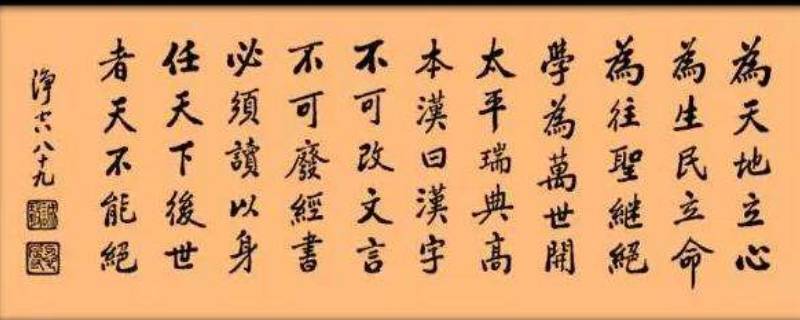 為天地立心
為生民立命
為往聖繼絕
學為萬世開
太平瑞典高
本漢曰漢字
不可改文言
不可廢經書
必須讀以身
任天下後世
者天不能絕
淨空八十九